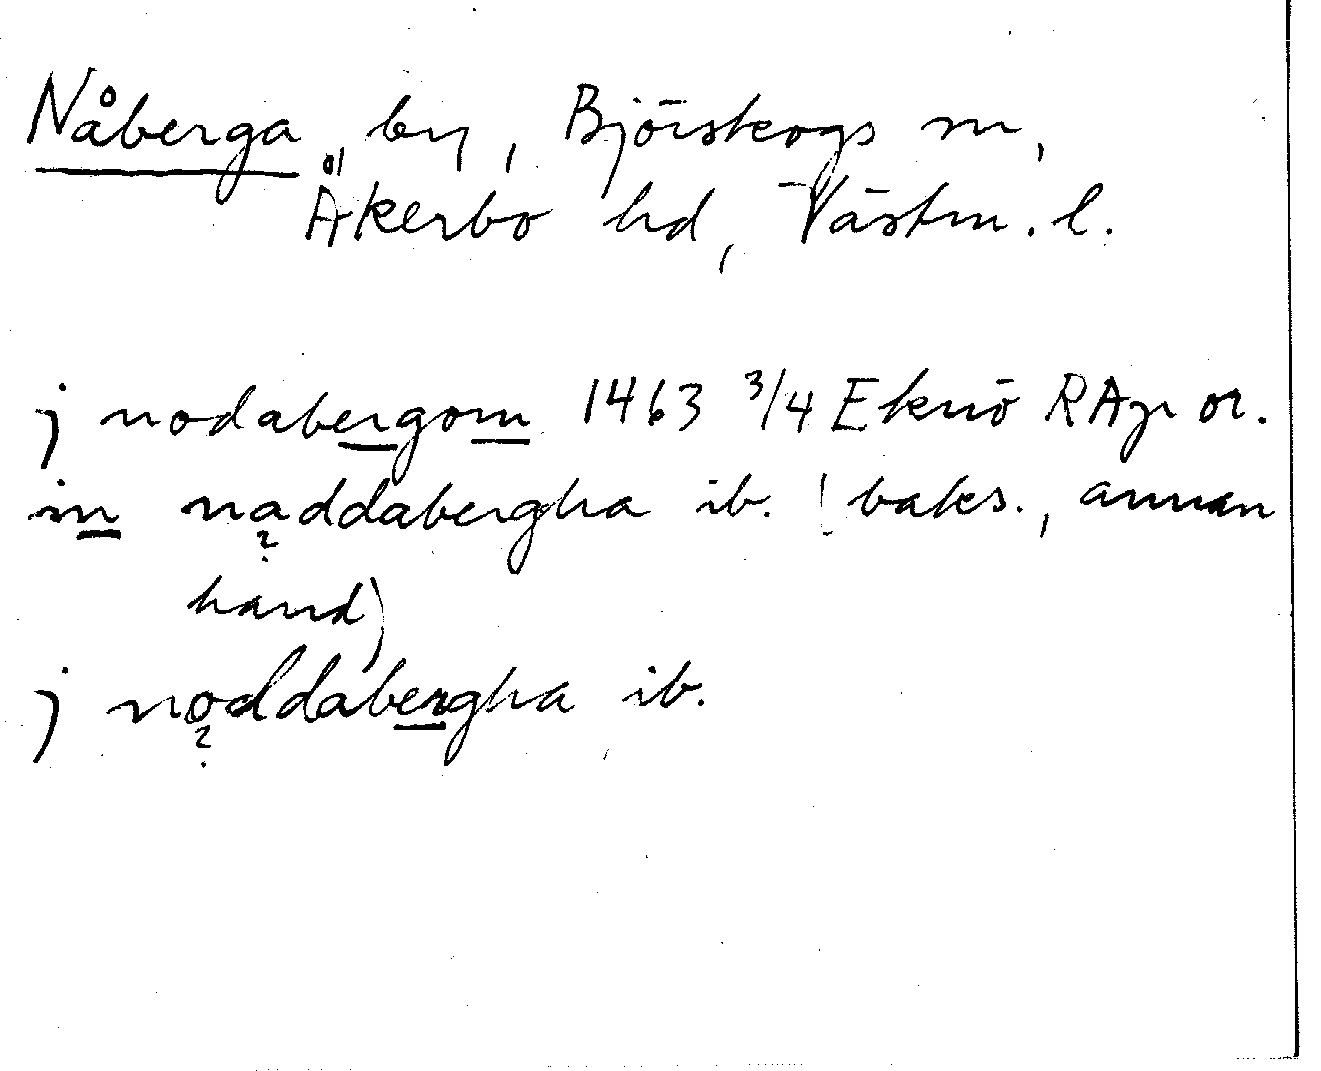 Nåberga, by, Björskogs sn,
Åkerbo hd, Västm. l.
j nodabergom 1463 3/4 Eknö RAp or.
in naddabergha ib. (baks., annan
hand)
j noddabergha ib.